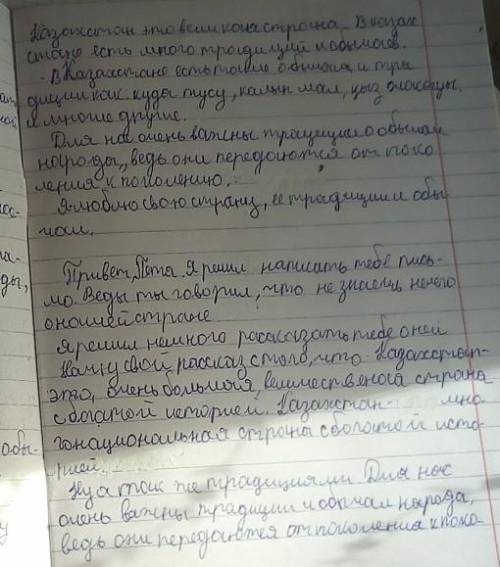 Казахстан это великая страна. В Казах
стане есть много традиций и обычаев.
В Казахстане есть такие обычаи и тра
диции как: куда тусу, калын мал, кыз
и многие другие.
Для нас очень важны традиции и обычаи
народа, ведь они передаются от поко
ления к поколению.
Я люблю свою страну, ее традиции и обы
чаи.
Привет, Петя. Я решил написать тебе пись-
мо. Ведь ты говорил, что не знаешь нечего
о нашей стране.
Я решил немного рассказать тебе о ней
Начну свой рассказ с того, что Казахстан-
это, очень большая, величественая страна
с богатой историей. Казахстан- мно
гонациональная страна с богатой исто-
рией.
Ну а так же традициями. Для нас
очень важны традиции и обычаи народа,
ведь они передаются от поколения к поко-
ной
ас-
на-
ды,
обы-
у